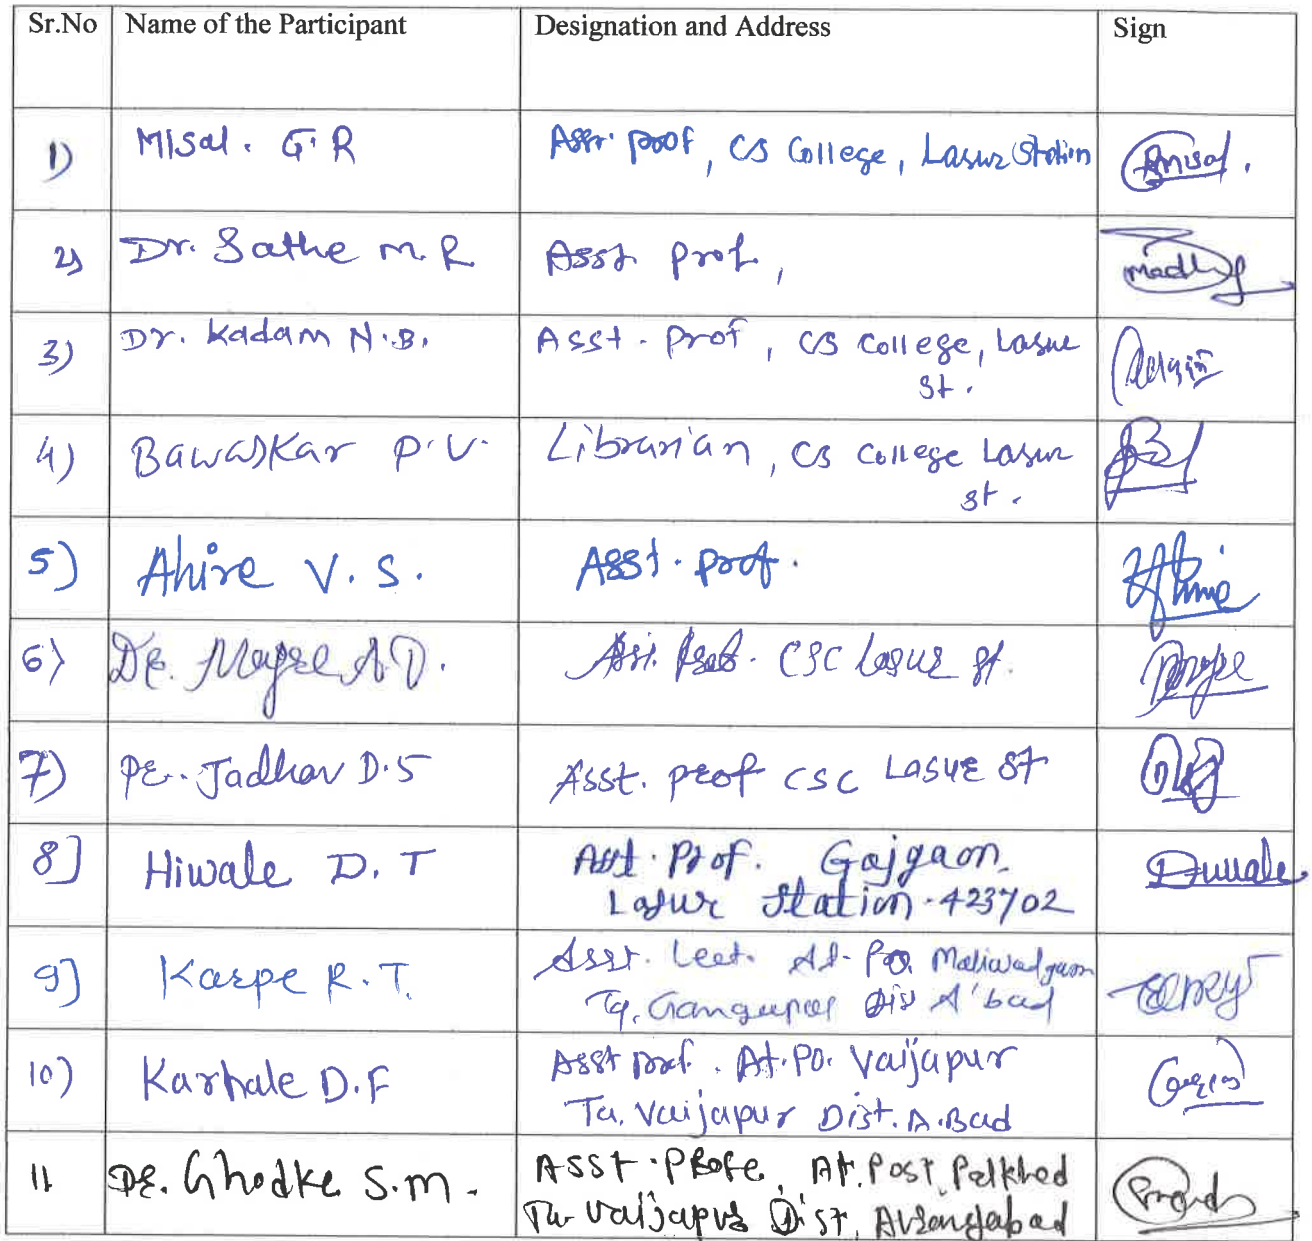 Sr.No Name of the Participant Designation and Address Sign
1) Misal. G.R Assi. prof, CS College, Lasur Station
2) Dr. Sathe M.R Asst. prof,
3) Dr. Kadam N.B. Asst. prof, CS College, Lasur
st.
4) Bawaskar P.V. Librarian, CS College Lasur
st.
5) Ahire V.S. Asst. prof.
6) Dr. Magre A.D. Assi. Prof. CSC Lasur st.
7) Dr. Jadhav D.S Asst. prof CSC Lasur St
8] Hiwale D.T Asst. Prof. Gajgaon.
Lasur Station-423702
9] Karpe R.T. Asst. Lect. At. Po. Maliwadgaon
Tq. Gangapur Dis A'bad
10) Karhale D.F Asst prof. At.Po. Vaijapur
Ta. Vaijapur Dist. A.Bad
11 Dr. Ghodke S.M. Asst. Profe, At. Post. Palkhed
Vaijapur Dist, Aurangabad